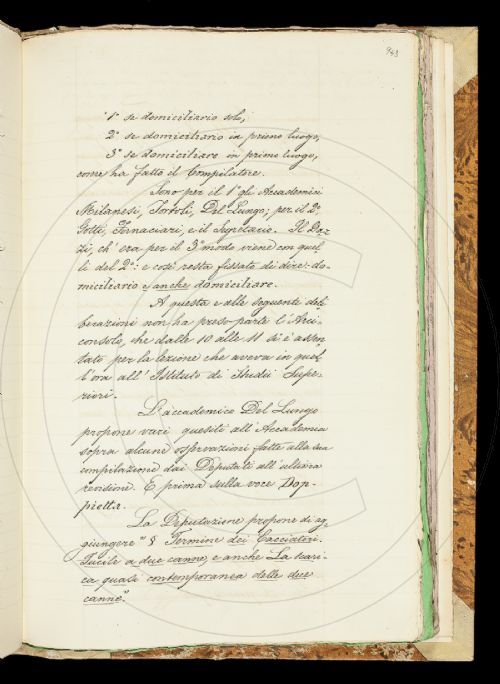 943
1º se domiciliario solo;
2º se domiciliario in primo luogo,
3º se domiciliare in primo luogo,
come ha fatto il Compilatore.
Sono per il 1º gli Accademici
Milanesi, Tortoli, Del Lungo; per il 2º,
Gotti, Fornaciari, e il Segretario. Il Daz-
zi, ch'era per il 3º modo viene con quel-
li del 2º: e così resta fissato di dire: do-
miciliario e anche domiciliare.
A questa e alle seguente deli-
berazioni non ha preso parte l'Arci-
consolo, che dalle 10 alle 11 si è assen-
tato per la lezione che aveva in quel-
l'ora all'Istituto di Studii Supe-
riori.
L'accademico Del Lungo
propone varj quesiti all'Accademia
sopra alcune osservazioni fatte alla sua
compilazione dai Deputati all'ultima
revisione. E prima sulla voce Dop-
pietta.
La Deputazione propone di ag-
giungere "§ Termine dei Cacciatori.
Fucile a due canne, e anche La scari-
ca quasi contemporanea delle due
canne".